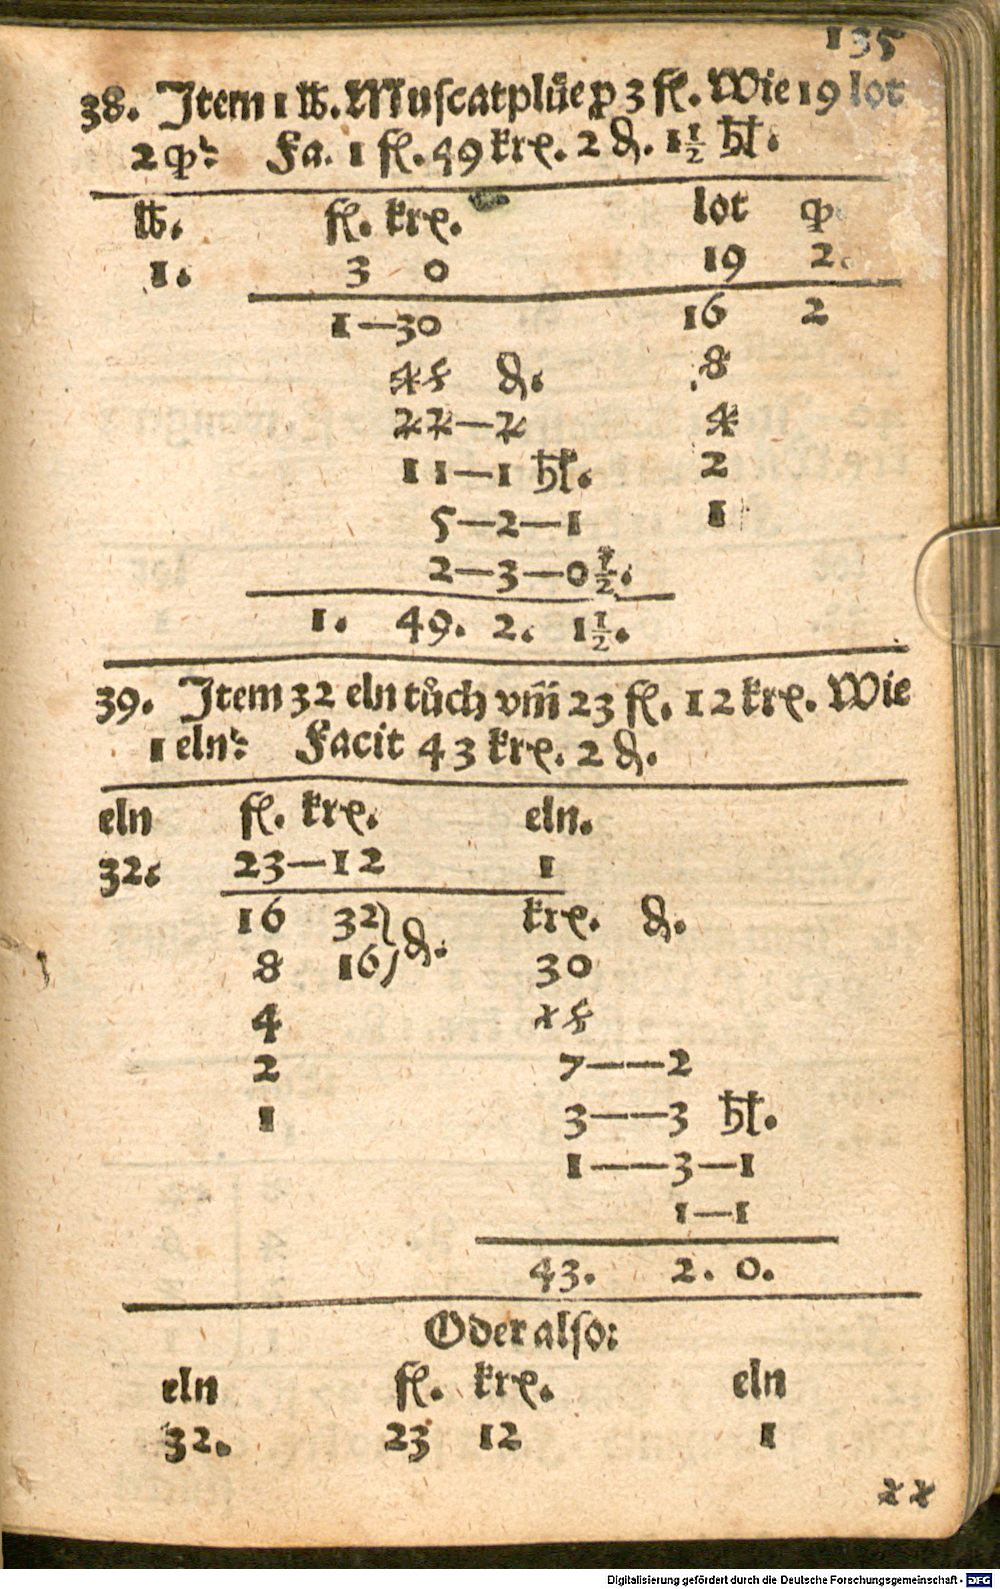 135
38. Item 1 ℔. Muscatplüe ꝑ 3 fl. Wie 19 lot
2 qͥ: Fa. 1 fl. 49 krꝭ. 2 ₰. 1½ hl.
℔. fl. krꝭ. lot q
1. 3 0 19 2.
1—30 16 2
45 ₰. 8
22—2 4
11—1 hl. 2
5—2—1 1
2—3—0½.
1. 49. 2. 1½.
39. Item 32 eln tůch vm̃ 23 fl. 12 krꝭ. Wie
1 eln: Facit 43 krꝭ. 2 ₰.
eln fl. krꝭ. eln.
32. 23—12 1
16 32) ₰. krꝭ. ₰.
8 16) 30
4 15
2 7——2
1 3——3 hl.
1——3—1
1—1
43. 2. 0.
Oder also:
eln fl. krꝭ. eln
32. 23 12 1
22
Digitalisierung gefördert durch die Deutsche Forschungsgemeinschaft - DFG